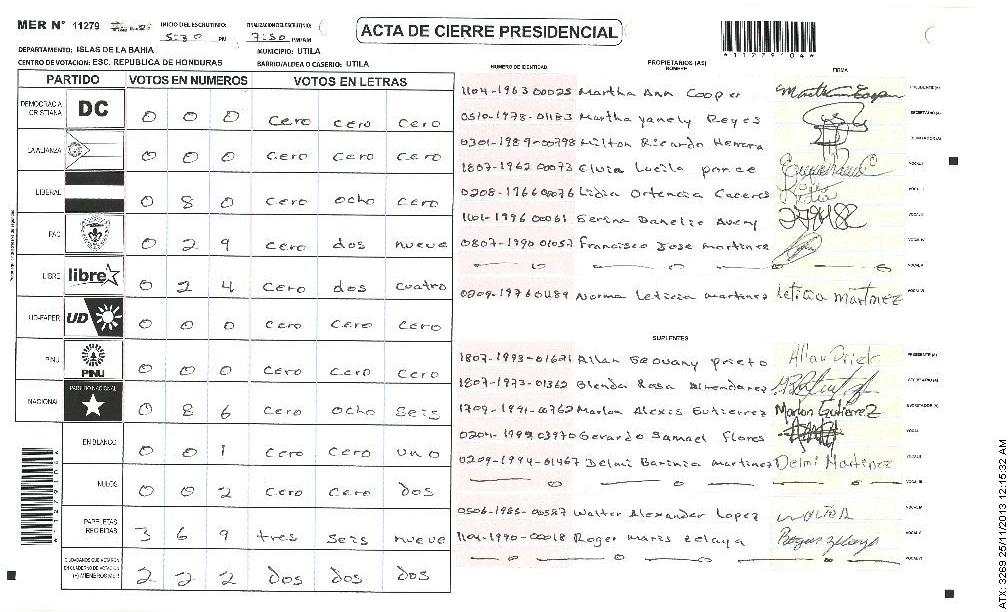 MER N° 11279
INICIO DEL ESCRUTINIO: 5:30 PM
FINALIZACION DEL ESCRUTINIO: 7:50 PM/AM
ACTA DE CIERRE PRESIDENCIAL
*11279104*
DEPARTAMENTO: ISLAS DE LA BAHIA
MUNICIPIO: UTILA
CENTRO DE VOTACION: ESC. REPUBLICA DE HONDURAS
BARRIO/ALDEA O CASERIO: UTILA
PARTIDO VOTOS EN NUMEROS VOTOS EN LETRAS
DEMOCRACIA CRISTIANA DC 0 0 0 cero cero cero
LA ALIANZA 0 0 0 cero cero cero
LIBERAL 0 8 0 cero ocho cero
PAC 0 2 9 cero dos nueve
LIBRE libre 0 2 4 cero dos cuatro
UD-FAPER UD 0 0 0 cero cero cero
PINU PINU 0 0 0 cero cero cero
NACIONAL PARTIDO NACIONAL 0 8 6 cero ocho seis
EN BLANCO 0 0 1 cero cero uno
NULOS 0 0 2 cero cero dos
PAPELETAS RECIBIDAS 3 6 9 tres seis nueve
CIUDADANOS QUE VOTARON EN CUADERNO DE VOTACION (+) MIEMBROS MER 2 2 2 dos dos dos
NUMERO DE IDENTIDAD
PROPIETARIOS (AS)
NOMBRE
FIRMA
1104-1963 00025 Martha Ann Cooper
PRESIDENTE(A)
0510-1978-01183 Martha yanely Reyes
SECRETARIO(A)
0301-1989-00798 Milton Ricardo Herrera
ESCRUTADOR(A)
1807-1962 00073 Elvia Lucila ponce
VOCAL I
0208-1966 00076 Lidia Ortencia Caceres
VOCAL II
1101-1996 00061 Serina Danelie Avery
VOCAL III
0807-1990 01057 Francisco Jose martinez
VOCAL IV
VOCAL V
0209-1976 01189 Norma Leticia martinez Leticia Martinez
VOCAL VI
SUPLENTES
1807-1993-01621 Allan Geovany prieto
PRESIDENTE(A)
1807-1973-01362 Glenda Rosa Almendarez
SECRETARIO(A)
1709-1991-00762 Marlon Alexis Gutierrez Marlon Gutierrez
ESCRUTADOR(A)
Gerardo Samael Flores
VOCAL I
0209-1994-01467 Delmi Barinia martinez Delmi Martinez
VOCAL II
VOCAL III
0506-1985-00587 Walter Alexander Lopez
VOCAL IV
1104-1990-00018 Roger Maris Zelaya
VOCAL V
VOCAL VI
ATX: 3269 25/11/2013 12:15:32 AM